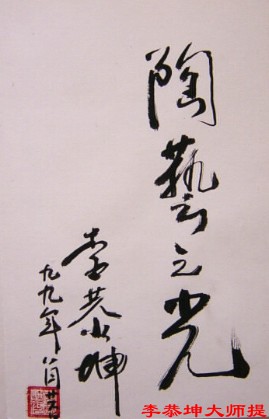 陶艺之光
李恭坤
九九年
李恭坤大师提